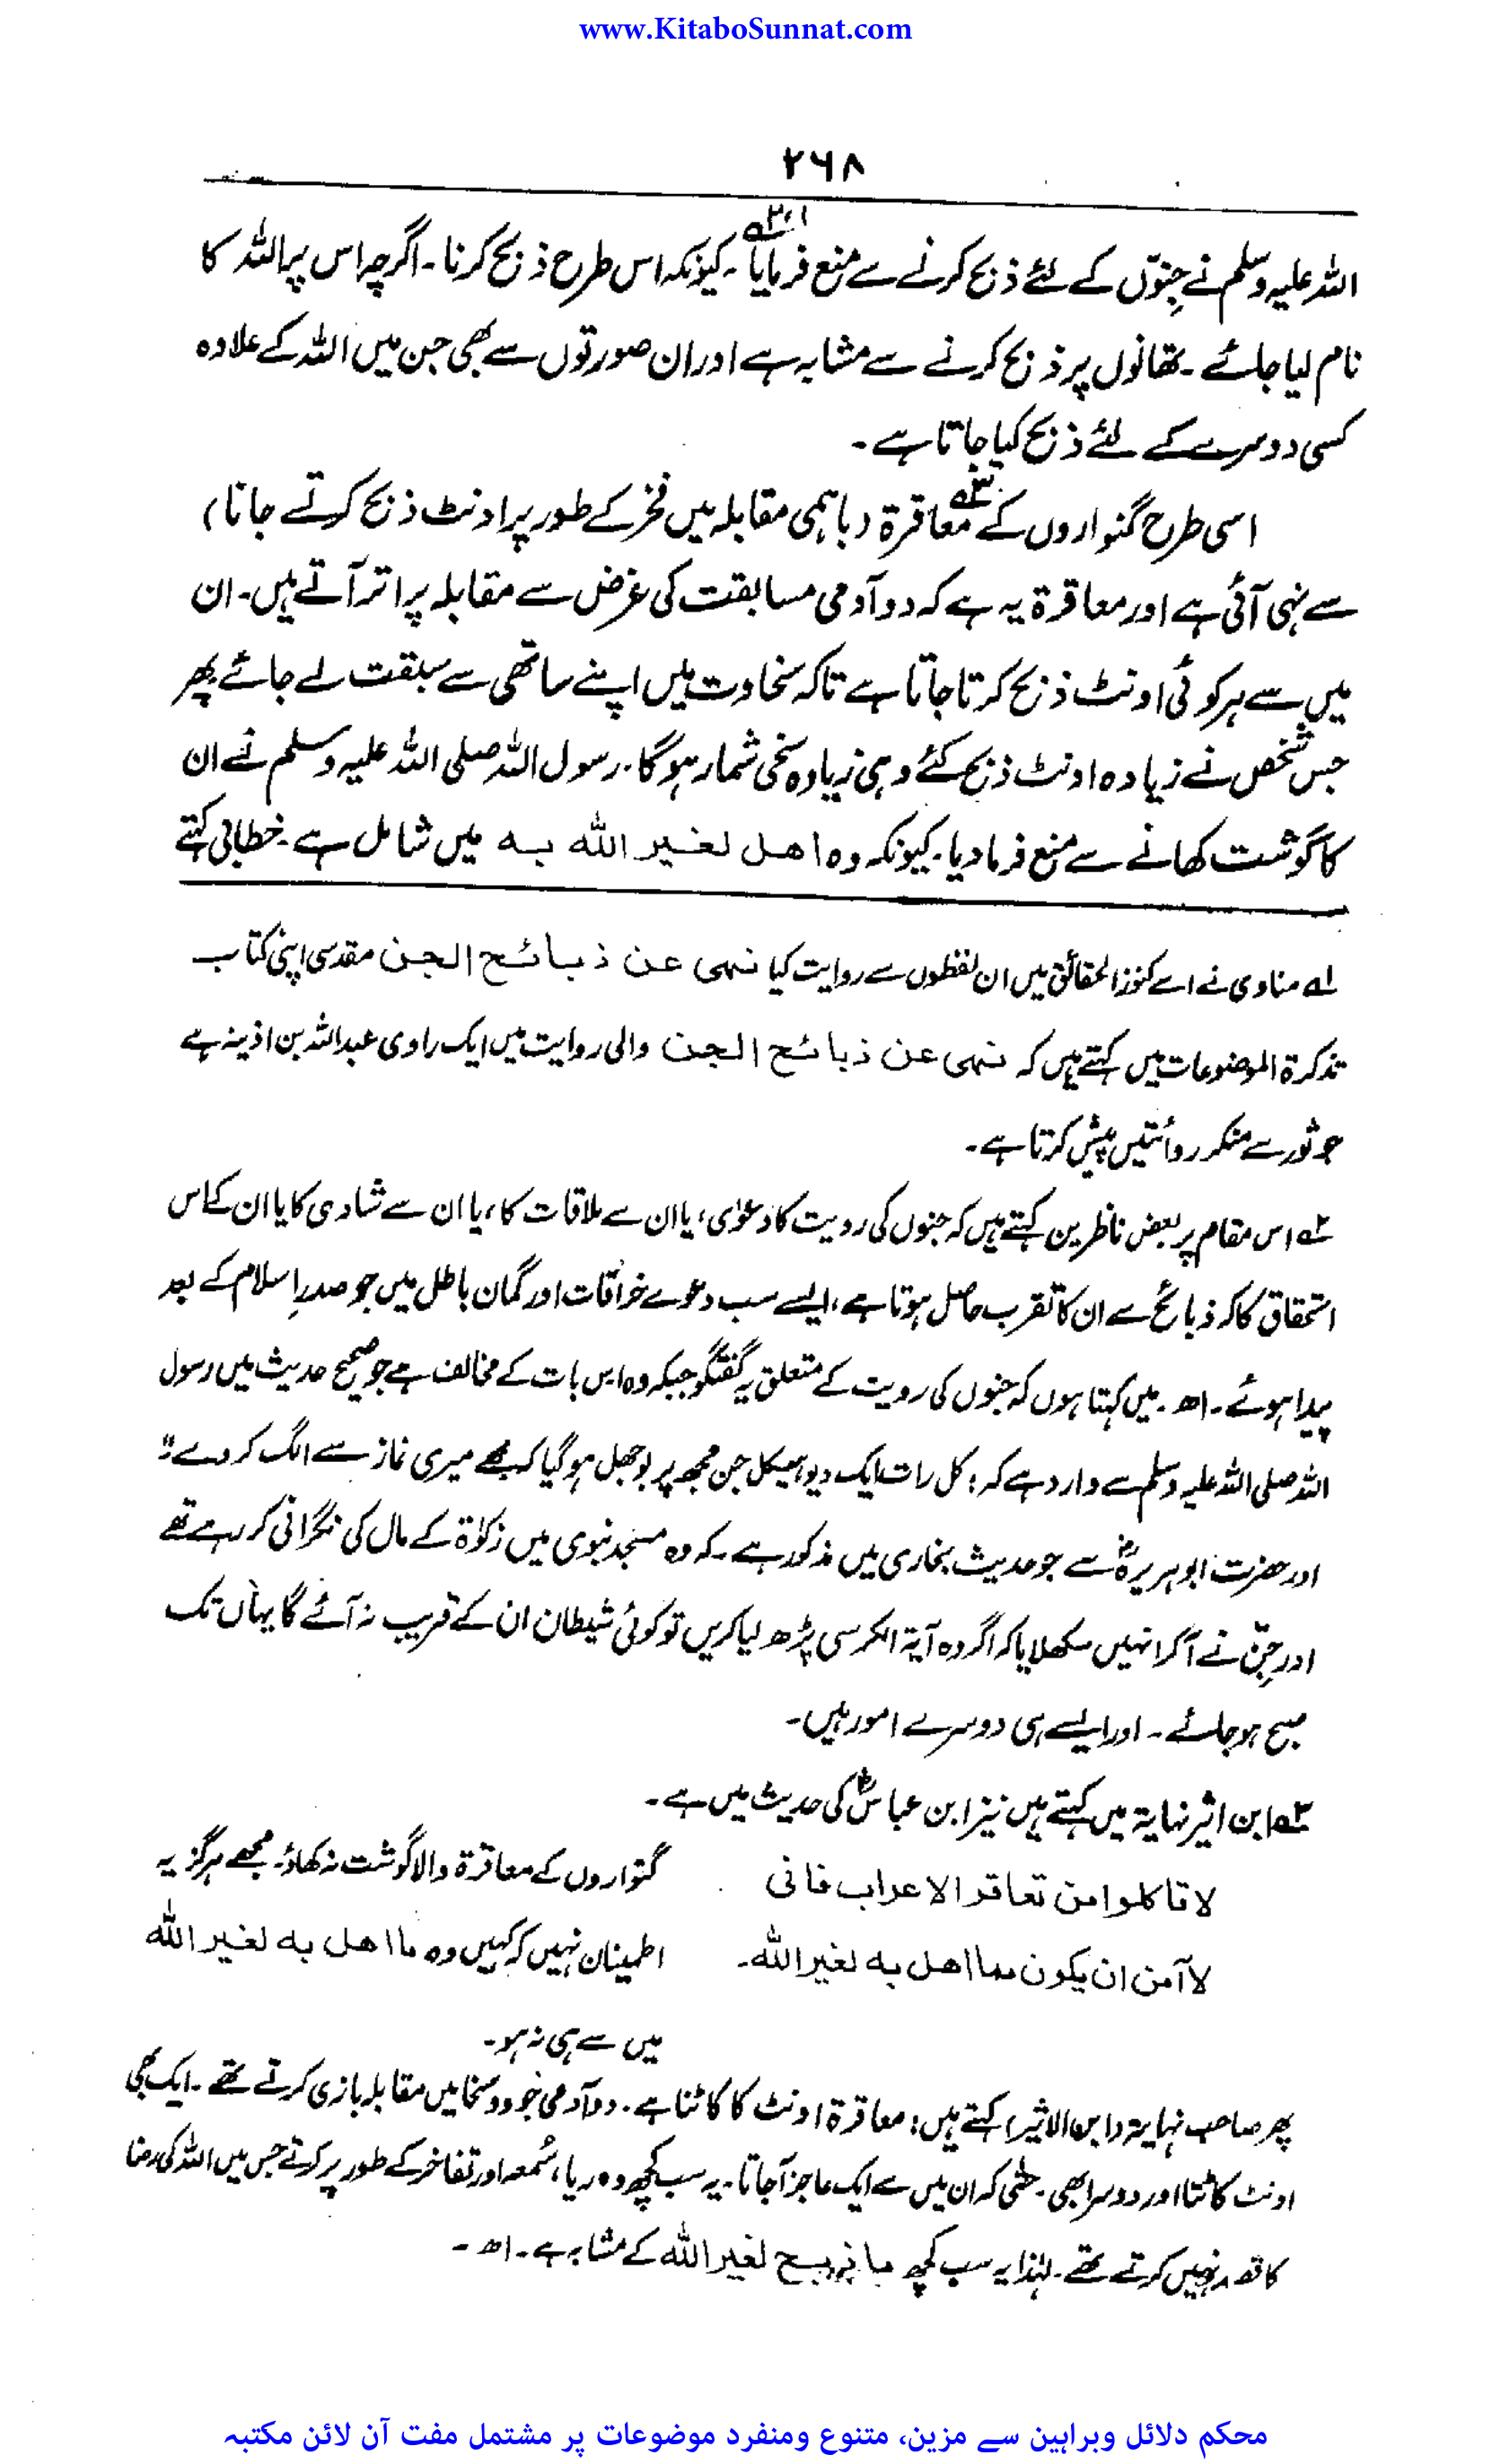 www.KitaboSunnat.com
۲۶۸
اللہ علیہ وسلم نے جِنّوں کے لئے ذبح کرنے سے منع فرمایا۱،۲؎۔ کیونکہ اس طرح ذبح کرنا۔ اگرچہ اس پر اللہ کا
نام لیا جائے۔ تھانوں پر ذبح کرنے سے مشابہ ہے اور ان صورتوں سے بھی جن میں اللہ کے علاوہ
کسی دوسرے کے لئے ذبح کیا جاتا ہے۔
اسی طرح گنواروں کے معاقرۃ۳؎ (باہمی مقابلہ میں فخر کے طور پر اونٹ ذبح کرتے جانا)
سے نہی آئی ہے اور معاقرۃ یہ ہے کہ دو آدمی مسابقت کی غرض سے مقابلہ پر اتر آتے ہیں۔ ان
میں سے ہر کوئی اونٹ ذبح کرتا جاتا ہے تاکہ سخاوت میں اپنے ساتھی سے سبقت لے جائے پھر
جس شخص نے زیادہ اونٹ ذبح کئے وہی زیادہ سخی شمار ہوگا۔ رسول اللہ صلی اللہ علیہ وسلم نے ان
کا گوشت کھانے سے منع فرما دیا۔ کیونکہ وہ اهل لغير الله به میں شامل ہے۔ خطابی کہتے
۱؎ مناوی نے اسے کنوز الحقائق میں ان لفظوں سے روایت کیا نهى عن ذبائح الجن مقدسی اپنی کتاب
تذکرۃ الموضوعات میں کہتے ہیں کہ نهى عن ذبائح الجن والی روایت میں ایک راوی عبداللہ بن اذینہ ہے
جو ثور سے منکر روائتیں پیش کرتا ہے۔
۲؎ اس مقام پر بعض ناظرین کہتے ہیں کہ جنوں کی رویت کا دعوٰی، یا ان سے ملاقات کا، یا ان سے شادی کا یا ان کے اس
استحقاق کا کہ ذبائح سے ان کا تقرب حاصل ہوتا ہے، ایسے سب دعوے خرافات اور گمان باطل ہیں جو صدرِ اسلام کے بعد
پیدا ہوئے۔ اھ۔ میں کہتا ہوں کہ جنوں کی رویت کے متعلق یہ گفتگو جبکہ وہ اس بات کے مخالف ہے جو صحیح حدیث میں رسول
اللہ صلی اللہ علیہ وسلم سے وارد ہے کہ: کل رات ایک دیو ہیکل جن مجھ پر بوجھل ہوگیا کہ مجھے میری نماز سے الگ کر دے"
اور حضرت ابوہریرہؓ سے جو حدیث بخاری میں مذکور ہے۔ کہ وہ مسجد نبوی میں زکوٰۃ کے مال کی نگرانی کر رہے تھے
اور جِنّ نے آکر انہیں سکھلایا کہ اگر وہ آیۃ الکرسی پڑھ لیا کریں تو کوئی شیطان ان کے قریب نہ آئے گا یہاں تک
صبح ہو جائے۔ اور ایسے ہی دوسرے امور ہیں۔
۳؎ ابن اثیر نہایۃ میں کہتے ہیں نیز ابن عباسؓ کی حدیث میں ہے۔
لا تاكلوا من تعاقر الاعراب فانى گنواروں کے معاقرۃ والا گوشت نہ کھاؤ۔ مجھے ہرگز یہ
لا آمن ان يكون مما اهل به لغير الله۔ اطمینان نہیں کہ کہیں وہ ما اهل به لغير الله
میں سے ہی نہ ہو۔
پھر صاحب نہایۃ (ابن الاثیر) کہتے ہیں: معاقرۃ اونٹ کا کاٹنا ہے۔ دو آدمی جو دو سخا میں مقابلہ بازی کرتے تھے۔ ایک بھی
اونٹ کاٹتا اور دوسرا بھی۔ حتٰی کہ ان میں سے ایک عاجز آجاتا۔ یہ سب کچھ وہ ریا، سُمعہ اور تفاخر کے طور پر کرتے جس میں اللہ کی رضا
کا قصد نہیں کرتے تھے۔ لہٰذا یہ سب کچھ ما ذبح لغير الله کے مشابہ ہے۔ اھ۔
محکم دلائل وبراہین سے مزین، متنوع ومنفرد موضوعات پر مشتمل مفت آن لائن مکتبہ